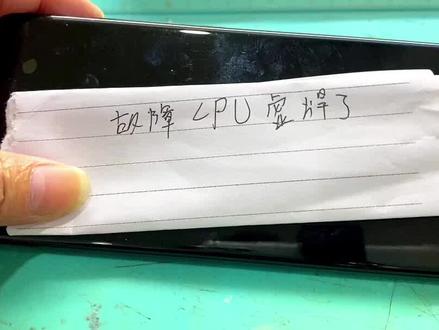 故障 CPU 虚焊了